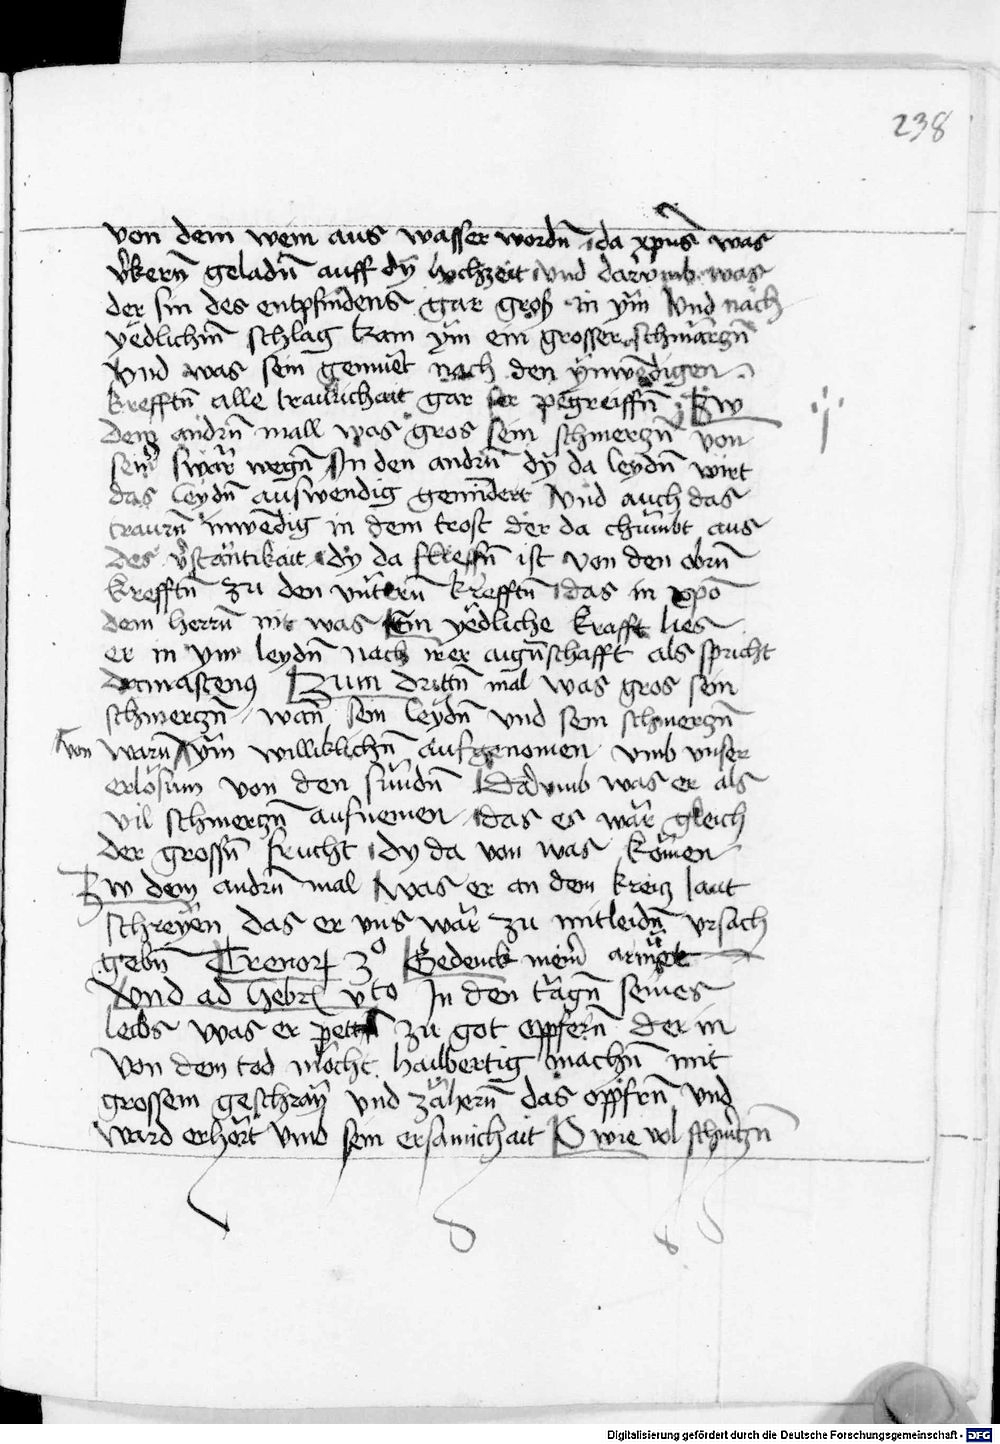 238
von dem wein aus wasser wordn̄ da xpūs was
v̓kern̄ geladn̄ auff dÿ hochzeit Vnd darumb was
der sin des entpfindens gar groß in ÿm Vnd nach
yedlichm̄ schlag kam ÿm ein grosser schmärczn̄
Vnd was sein gemuet nach den ÿnwēdigen
krefftn̄ alle traurichait gar ser pegreiffn̄ Zw
ij
dem andrn̄ mall was gros sein schmerczn̄ von
sein̓ swär wegn̄ In den andrn̄ dÿ da leydn̄ wirt
das leydn̄ auswendig gemīdert Vnd auch das
traurn̄ inwēdig in dem trost der da chumbt aus
des v̓stantikait dÿ da fliessn̄ ist von den obrn̄
krefftn̄ zu den vntern̄ krefftn̄ das in xpō
dem herrn̄ nit was Ein yedliche krafft lies
er in ÿm leydn̄ nach irer aign̄schafft als spricht
damascenꝯ Zum drittn̄ mal was gros sein
schmerczn̄ wan̄ sein leydn̄ vnd sein schmerczn̄
von
warn̄ ÿm williklichn̄ aufgenomen vmb vnser
erlösum von den sundn̄ Darvmb was er als
vil schmerczn̄ aufnemen das es wär gleich
der grossn̄ frucht dy da von was kömen
Zw dem andrn̄ mal Was er an dem kreicz laut
schreyen das er vns wär zu mitleidn̄ vrsach
gebn̄ Trenorꝝ 3º Gedenck mein̓ armuet
Vnd ad hebrꝫ vto In den tagn̄ seines
leibs was er pettn̄ zu got opfern̄ der in
von dem tod mocht hailbertig machn̄ mit
grossem geschraÿ vnd zähern̄ das opfrn̄ vnd
ward erhört vmb sein ersamichait O wie vol schm̓czn̄
Digitalisierung gefördert durch die Deutsche Forschungsgemeinschaft - DFG